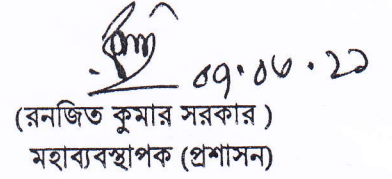 ০৭.০৬.২১
(রনজিত কুমার সরকার)
মহাব্যবস্থাপক (প্রশাসন)